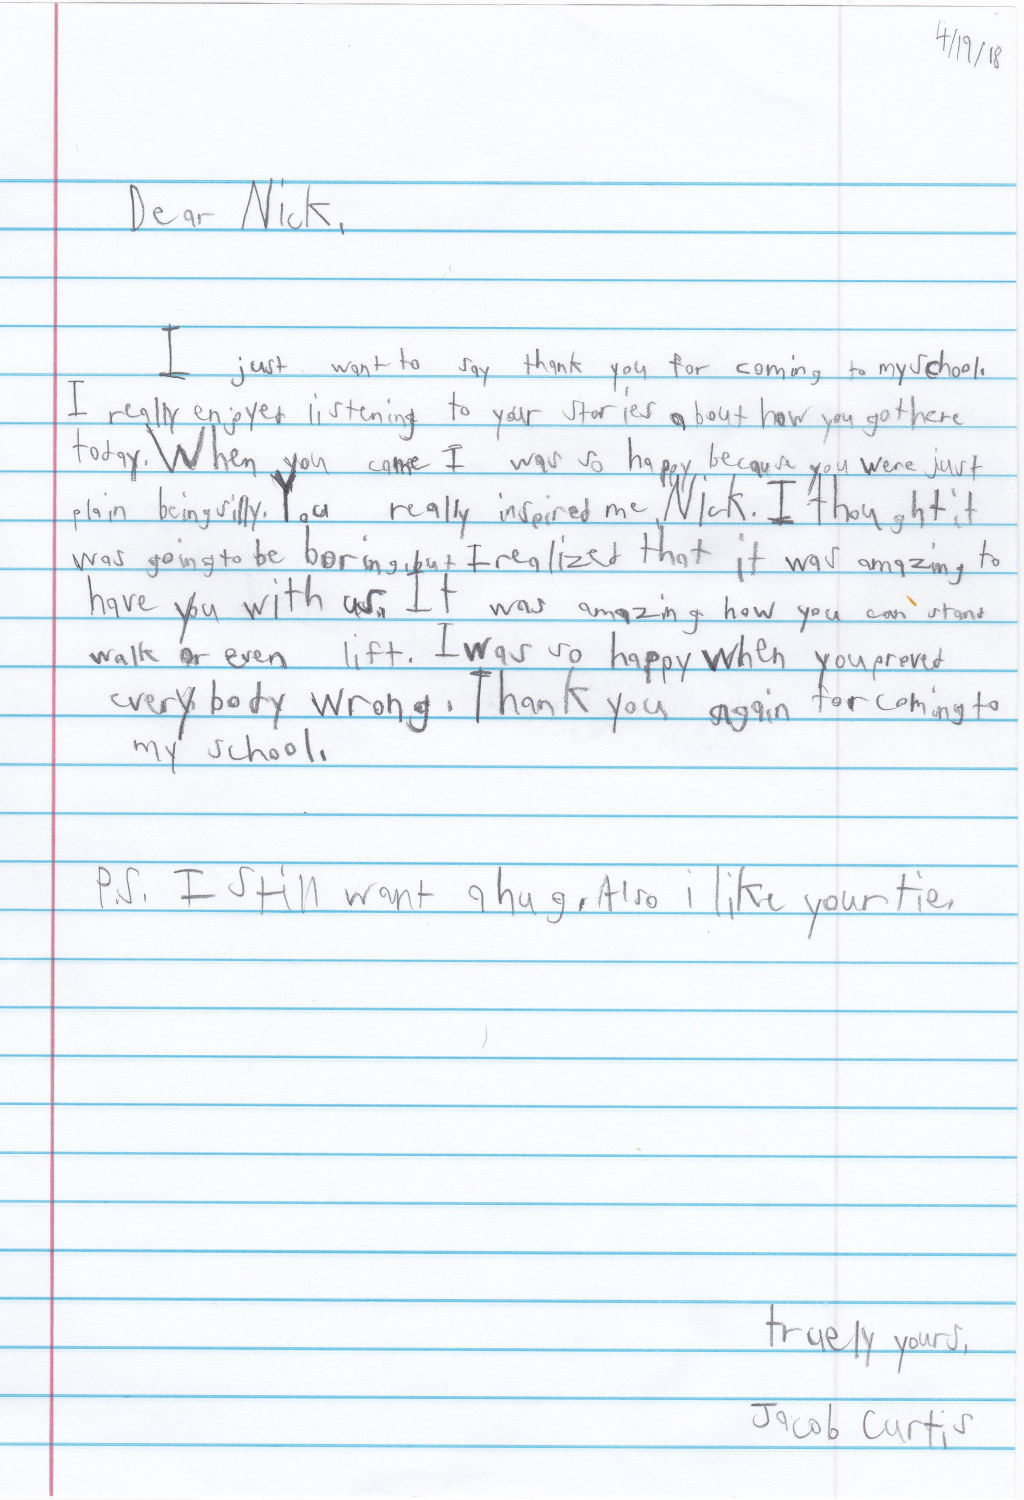 4/19/18
Dear Nick,
I just want to say thank you for coming to my school.
I really enjoyed listening to your stories about how you got here
today. When you came I was so happy because you were just
plain being silly. You really inspired me, Nick. I thought it
was going to be boring, but I realized that it was amazing to
have you with us. It was amazing how you can stand
walk or even lift. I was so happy when you proved
everybody wrong. Thank you again for coming to
my school.
P.S. I still want a hug. Also i like your tie.
truely yours,
Jacob Curtis